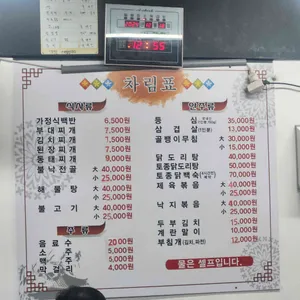 차림표
식사류
가정식백반 6,500원
부대찌개 7,000원
김치찌개 7,000원
된장찌개 7,000원
동태찌개 7,000원
불낙전골 대 40,000원
소 25,000원
해물탕 대 40,000원
소 25,000원
불고기 대 40,000원
소 25,000원
주류
음료수 2,000원
소주 5,000원
맥주 5,000원
막걸리 4,000원
안주류
등심 35,000원
삼겹살 13,000원
골뱅이무침 대 35,000원
소 25,000원
닭도리탕 40,000원
토종닭도리탕 50,000원
토종닭백숙 50,000원
제육볶음 대 40,000원
소 25,000원
낙지볶음 대 40,000원
소 25,000원
두부김치 15,000원
계란말이 10,000원
부침개(김치, 파전) 12,000원
물은 셀프입니다.
12:55